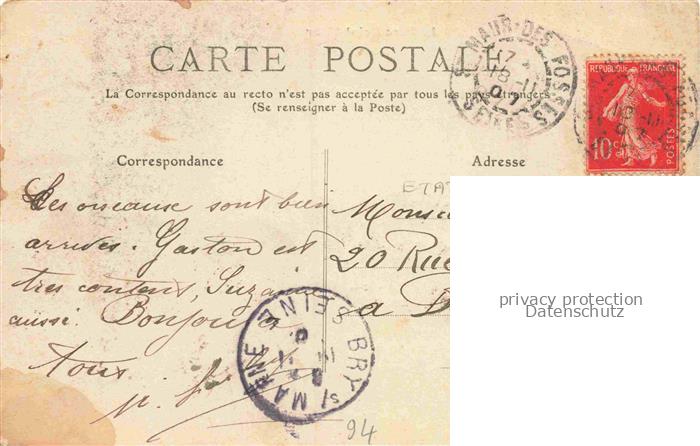 CARTE POSTALE
La Correspondance au recto n'est pas acceptée par tous les pays étrangers
(Se renseigner à la Poste)
Correspondance
Adresse
ST MAUR-DES FOSSÉS
17
18-11
07
SEINE
REPUBLIQUE FRANÇAISE
10c
POSTES
ETAT
Les oiseaux sont bien
arrives. Gaston est
tres content, Suzanne
aussi. Bonjour à
tous
Monsieur
20 Rue
a
BRY S/ MARNE
SEINE
94
privacy protection
Datenschutz